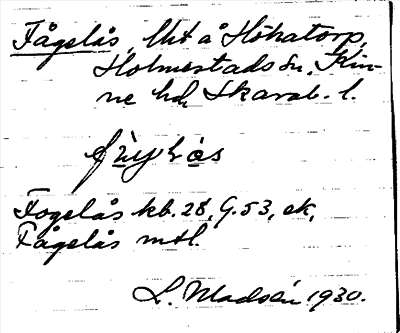 Fågelås, lht å Hökatorp,
Holmestads sn, Kin-
ne hd, Skarab. l.
Fogelås kb. 28, G. 53, ek,
Fågelås mtl.
L. Madsén 1930.